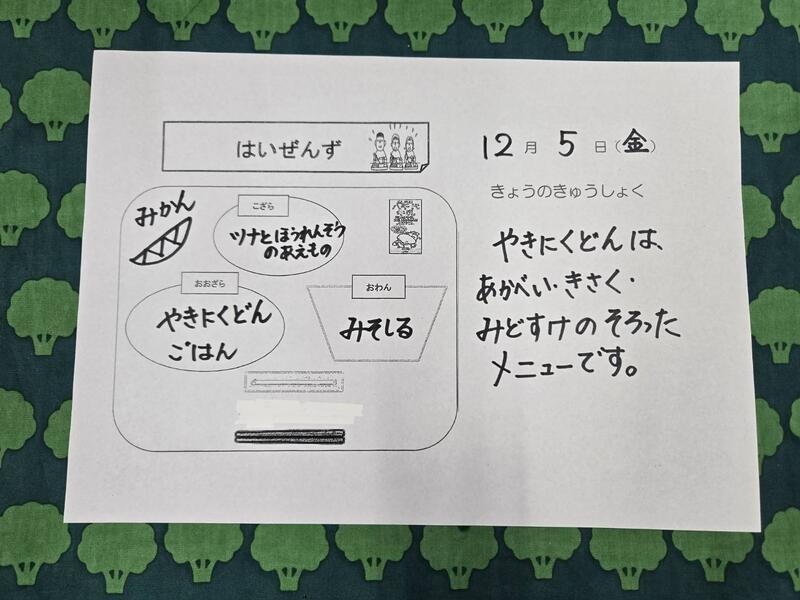 はいぜんず
12月5日(金)
きょうのきゅうしょく
みかん
こざら
ツナとほうれんそう
のあえもの
おおざら
やきにくどん
ごはん
おわん
みそしる
やきにくどんは、
あかべい・きさく・
みどすけのそろった
メニューです。